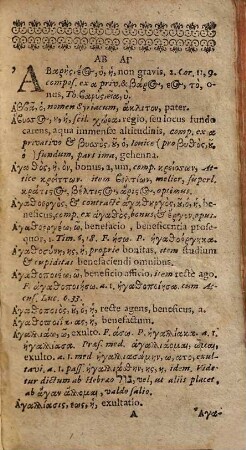 ΑΒ ΑΓ
Αβαρὴς, έος, ὁ, ἡ, non gravis, 2. Cor. 11, 9.
compos. ex α priv. & βάρος, εος, τὸ, o-
nus, Th. βαρύνω, ὁ.
Αββᾶ, ὁ, nomen Syriacum, ἄκλιτον, pater.
Αβυσσος, ου, ἡ, scil. χώρα, regio, seu locus fundo
carens, aqua immensæ altitudinis, comp. ex α
privativo & βυσσὸς, οῦ, ὁ, Ionicè pro βυθὸς, οῦ,
ὁ fundum, pars ima, gehenna.
Αγαθὸς, ὴ, ὸν, bonus, a, um, comp. κρείσσων, At-
ticè κρείττων. item βελτίων, melior, superl.
κράτιστος, βέλτιστος, ἄριστος, optimus.
Αγαθοεργὸς, & contractè ἀγαθουργὸς, οῦ, ὁ, ἡ, be-
neficus, comp. ex ἀγαθὸς, bonus, & ἔργον, opus.
Αγαθοεργέω, ῶ, benefacio, beneficentia prose-
quor, 1. Tim. 6, 18. F. ήσω. P. ἠγαθοέργηκα.
Αγαθωσύνη, ης, ἡ, propriè bonitas, item studium
& cupiditas benefaciendi omnibus.
Αγαθοποιέω, ῶ, beneficio afficio, item rectè ago.
F. ἀγαθοποιήσω. a. 1. ἠγαθοποίησα. cum Ac-
cus. Luc. 6. 33.
Αγαθοποιὸς, οῦ, ὁ, ἡ, rectè agens, beneficus, a.
Αγαθοποιΐα, ας, ἡ, benefactum.
Αγαλλιάω, ῶ, exulto. F. άσω. P. ἠγαλλίακα. a. 1,
ἠγαλλίασα. Præs. med. ἀγαλλιάομαι, ῶμαι,
exulto. a. 1. med ἠγαλλιασάμην, ω, ατο, exul-
tavi. a. 1. pass. ἠγαλλιάθην, ης, η, idem. Vide-
tur dictum ab Hebræo גיל, vel, ut aliis placet,
ab ἄγαν ἅλλομαι, valde salio.
Αγαλλίασις, εως, ἡ, exultatio.
A Αγα-